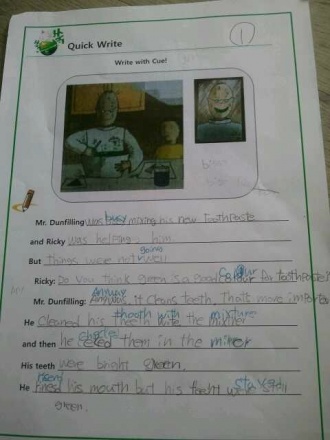 Quick Write
1
Write with Cue!
Mr. Dunfilling was busy making his new toothpaste
and Ricky was helping him.
But Things were not going well
Ricky: Do you think green is a good colour for toothpaste?
Mr. Dunfilling: Anyway, it cleans teeth. That's more
He cleaned his teeth with the mixture
and then he checked them in the mirror
His teeth were bright green.
He his mouth but his stayed
green.